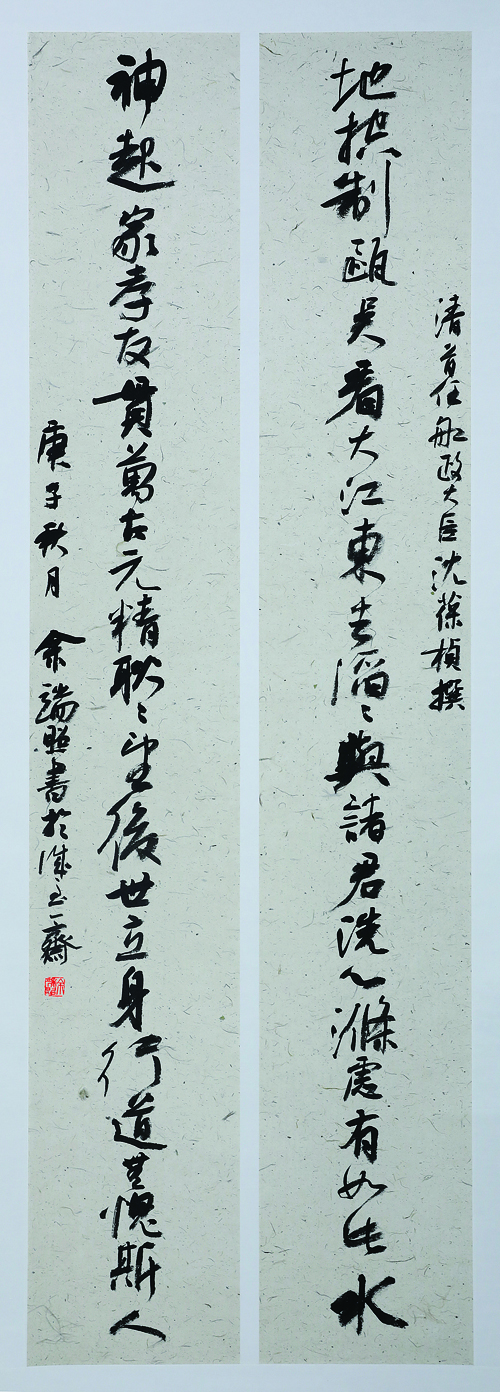 清首任船政大臣沈葆楨撰
地控制甌吳看大江東去滔〻與諸君洗心滌慮有如此水
神起家孝友貫萬古元精耿〻望後世立身行道無愧斯人
庚子秋月 余端照書於齋